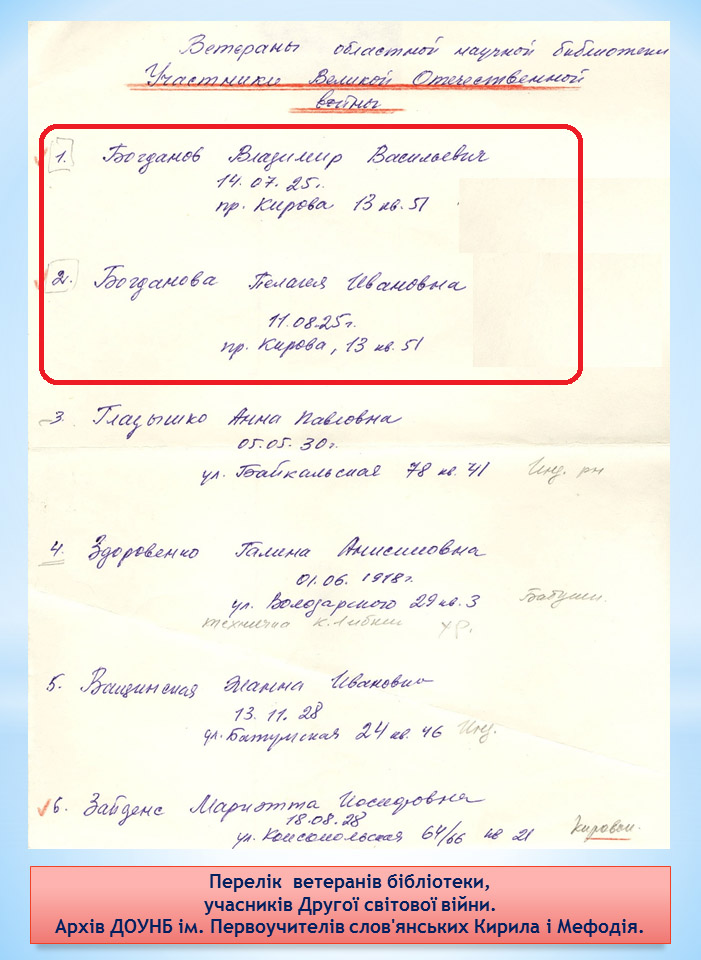 Ветераны областной научной библиотеки
Участники Великой Отечественной
войны
1. Богданов Владимир Васильевич
14.07.25г.
пр. Кирова 13 кв. 51
2. Богданова Пелагея Ивановна
11.08.25г.
пр. Кирова, 13 кв. 51
3. Гладышко Анна Павловна
05.05.30г.
ул. Байкальская 78 кв. 41 Инд. рн
4. Здоровенко Галина Анисимовна
01.06.1918г.
ул. Володарского 29 кв. 3 Бабушк.
5. Ващинская Жанна Ивановна
13.11.28
ул. Батумская 24 кв. 46 Инд.
6. Зайденс Мариэтта Иосифовна
18.08.28
ул. Комсомольская 64/66 кв 21 Кировск.
Перелік ветеранів бібліотеки,
учасників Другої світової війни.
Архів ДОУНБ ім. Первоучителів слов'янських Кирила і Мефодія.